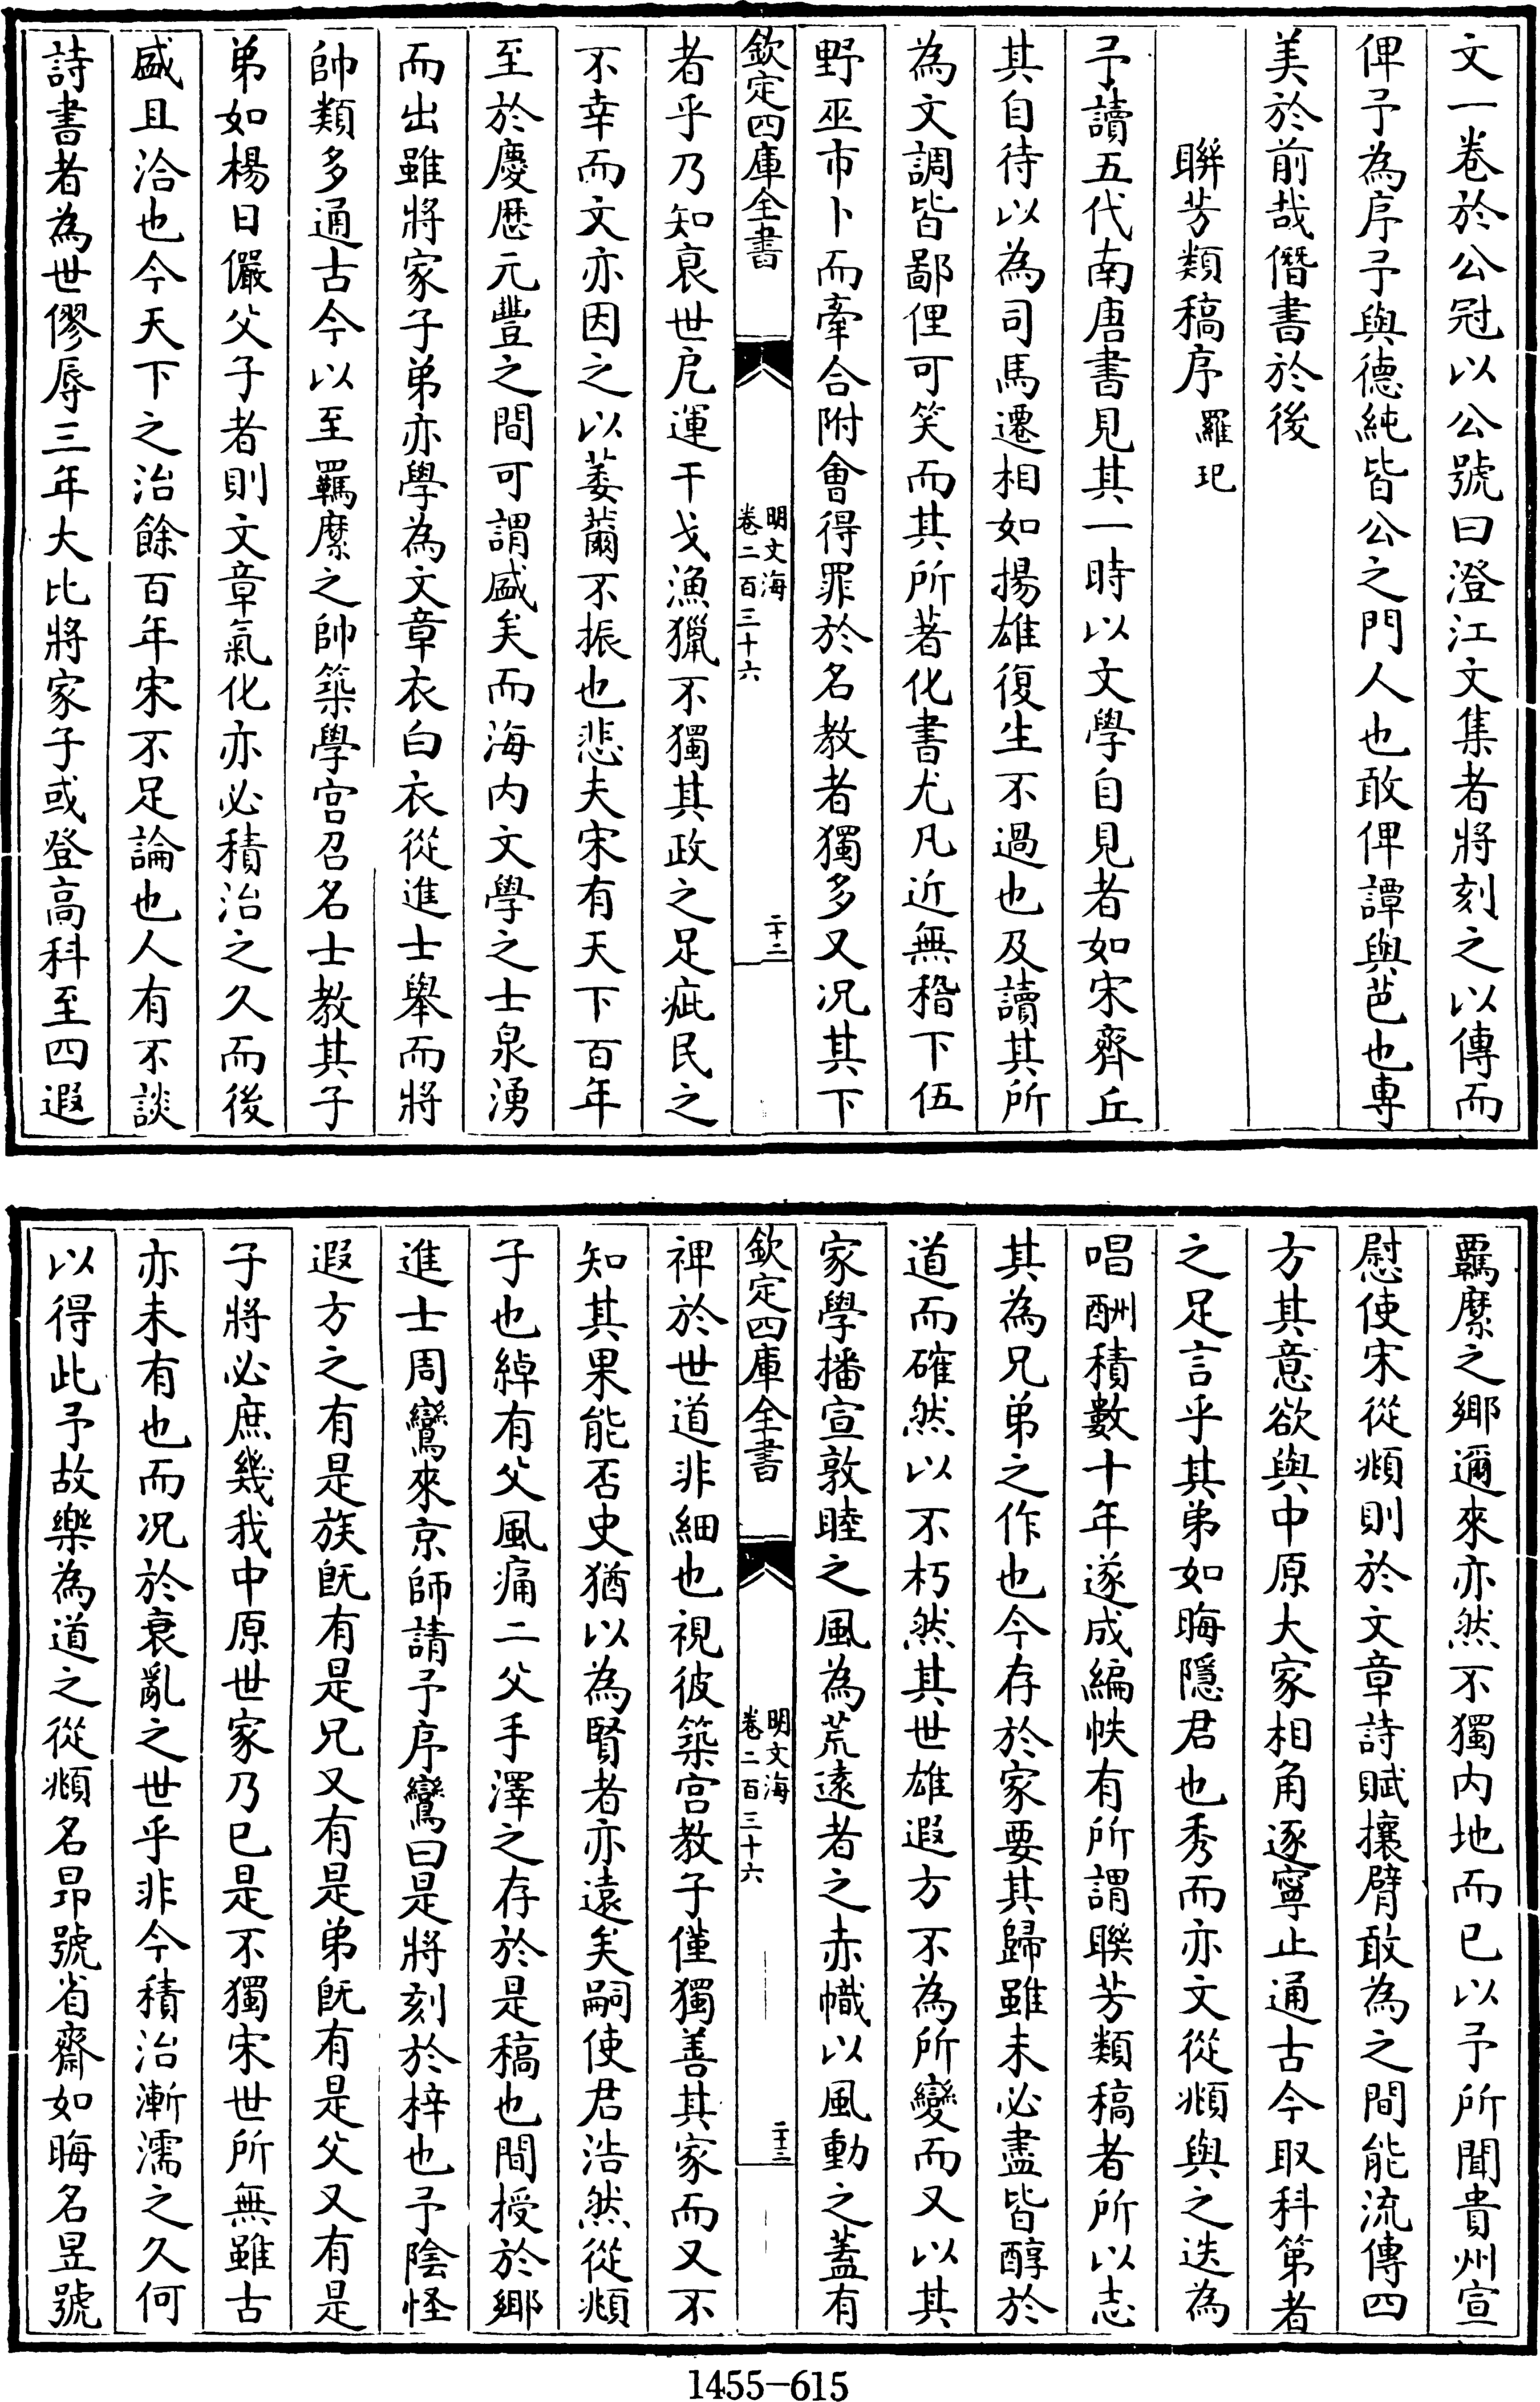 文一卷於公冠以公號曰澄江文集者將刻之以傳而
俾予為序予與德純皆公之門人也敢俾譚與芭也専
美於前哉僭書於後
聨芳類稿序羅玘
予讀五代南唐書見其一時以文學自見者如宋齊丘
其自待以為司馬遷相如揚雄復生不過也及讀其所
為文調皆鄙俚可笑而其所著化書尤凡近無稽下伍
野巫市卜而牽合附會得罪於名教者獨多又况其下
欽定四庫全書
明文海
卷二百三十六
二十二
者乎乃知衰世戹運干戈漁獵不獨其政之足疵民之
不幸而文亦因之以萎薾不振也悲夫宋有天下百年
至於慶厯元豐之間可謂盛矣而海内文學之士泉湧
而出雖將家子弟亦學為文章衣白衣從進士舉而將
帥類多通古今以至羈縻之帥築學宫召名士教其子
弟如楊日儼父子者則文章氣化亦必積治之久而後
盛且洽也今天下之治餘百年宋不足論也人有不談
詩書者為世僇辱三年大比將家子或登髙科至四遐
覊縻之鄉邇來亦然不獨内地而已以予所聞貴州宣
慰使宋從頫則於文章詩賦攘臂敢為之間能流傳四
方其意欲與中原大家相角逐寧止通古今取科第者
之足言乎其弟如晦隱君也秀而亦文從頫與之迭為
唱酬積數十年遂成編帙有所謂聨芳類稿者所以志
其為兄弟之作也今存於家要其歸雖未必盡皆醇於
道而確然以不朽然其世雄遐方不為所變而又以其
家學播宣敦睦之風為荒逺者之赤幟以風動之蓋有
欽定四庫全書
明文海
卷二百三十六
二十三
裨於世道非細也視彼築宫教子僅獨善其家而又不
知其果能否史猶以為賢者亦逺矣嗣使君浩然從頫
子也綽有父風痛二父手澤之存於是稿也間授於鄉
進士周鸞來京師請予序鸞曰是將刻於梓也予陰怪
遐方之有是族旣有是兄又有是弟旣有是父又有是
子將必庶幾我中原世家乃已是不獨宋世所無雖古
亦未有也而况於衰亂之世乎非今積治漸濡之久何
以得此予故樂為道之從頫名昻號省齋如晦名昱號
1455-615